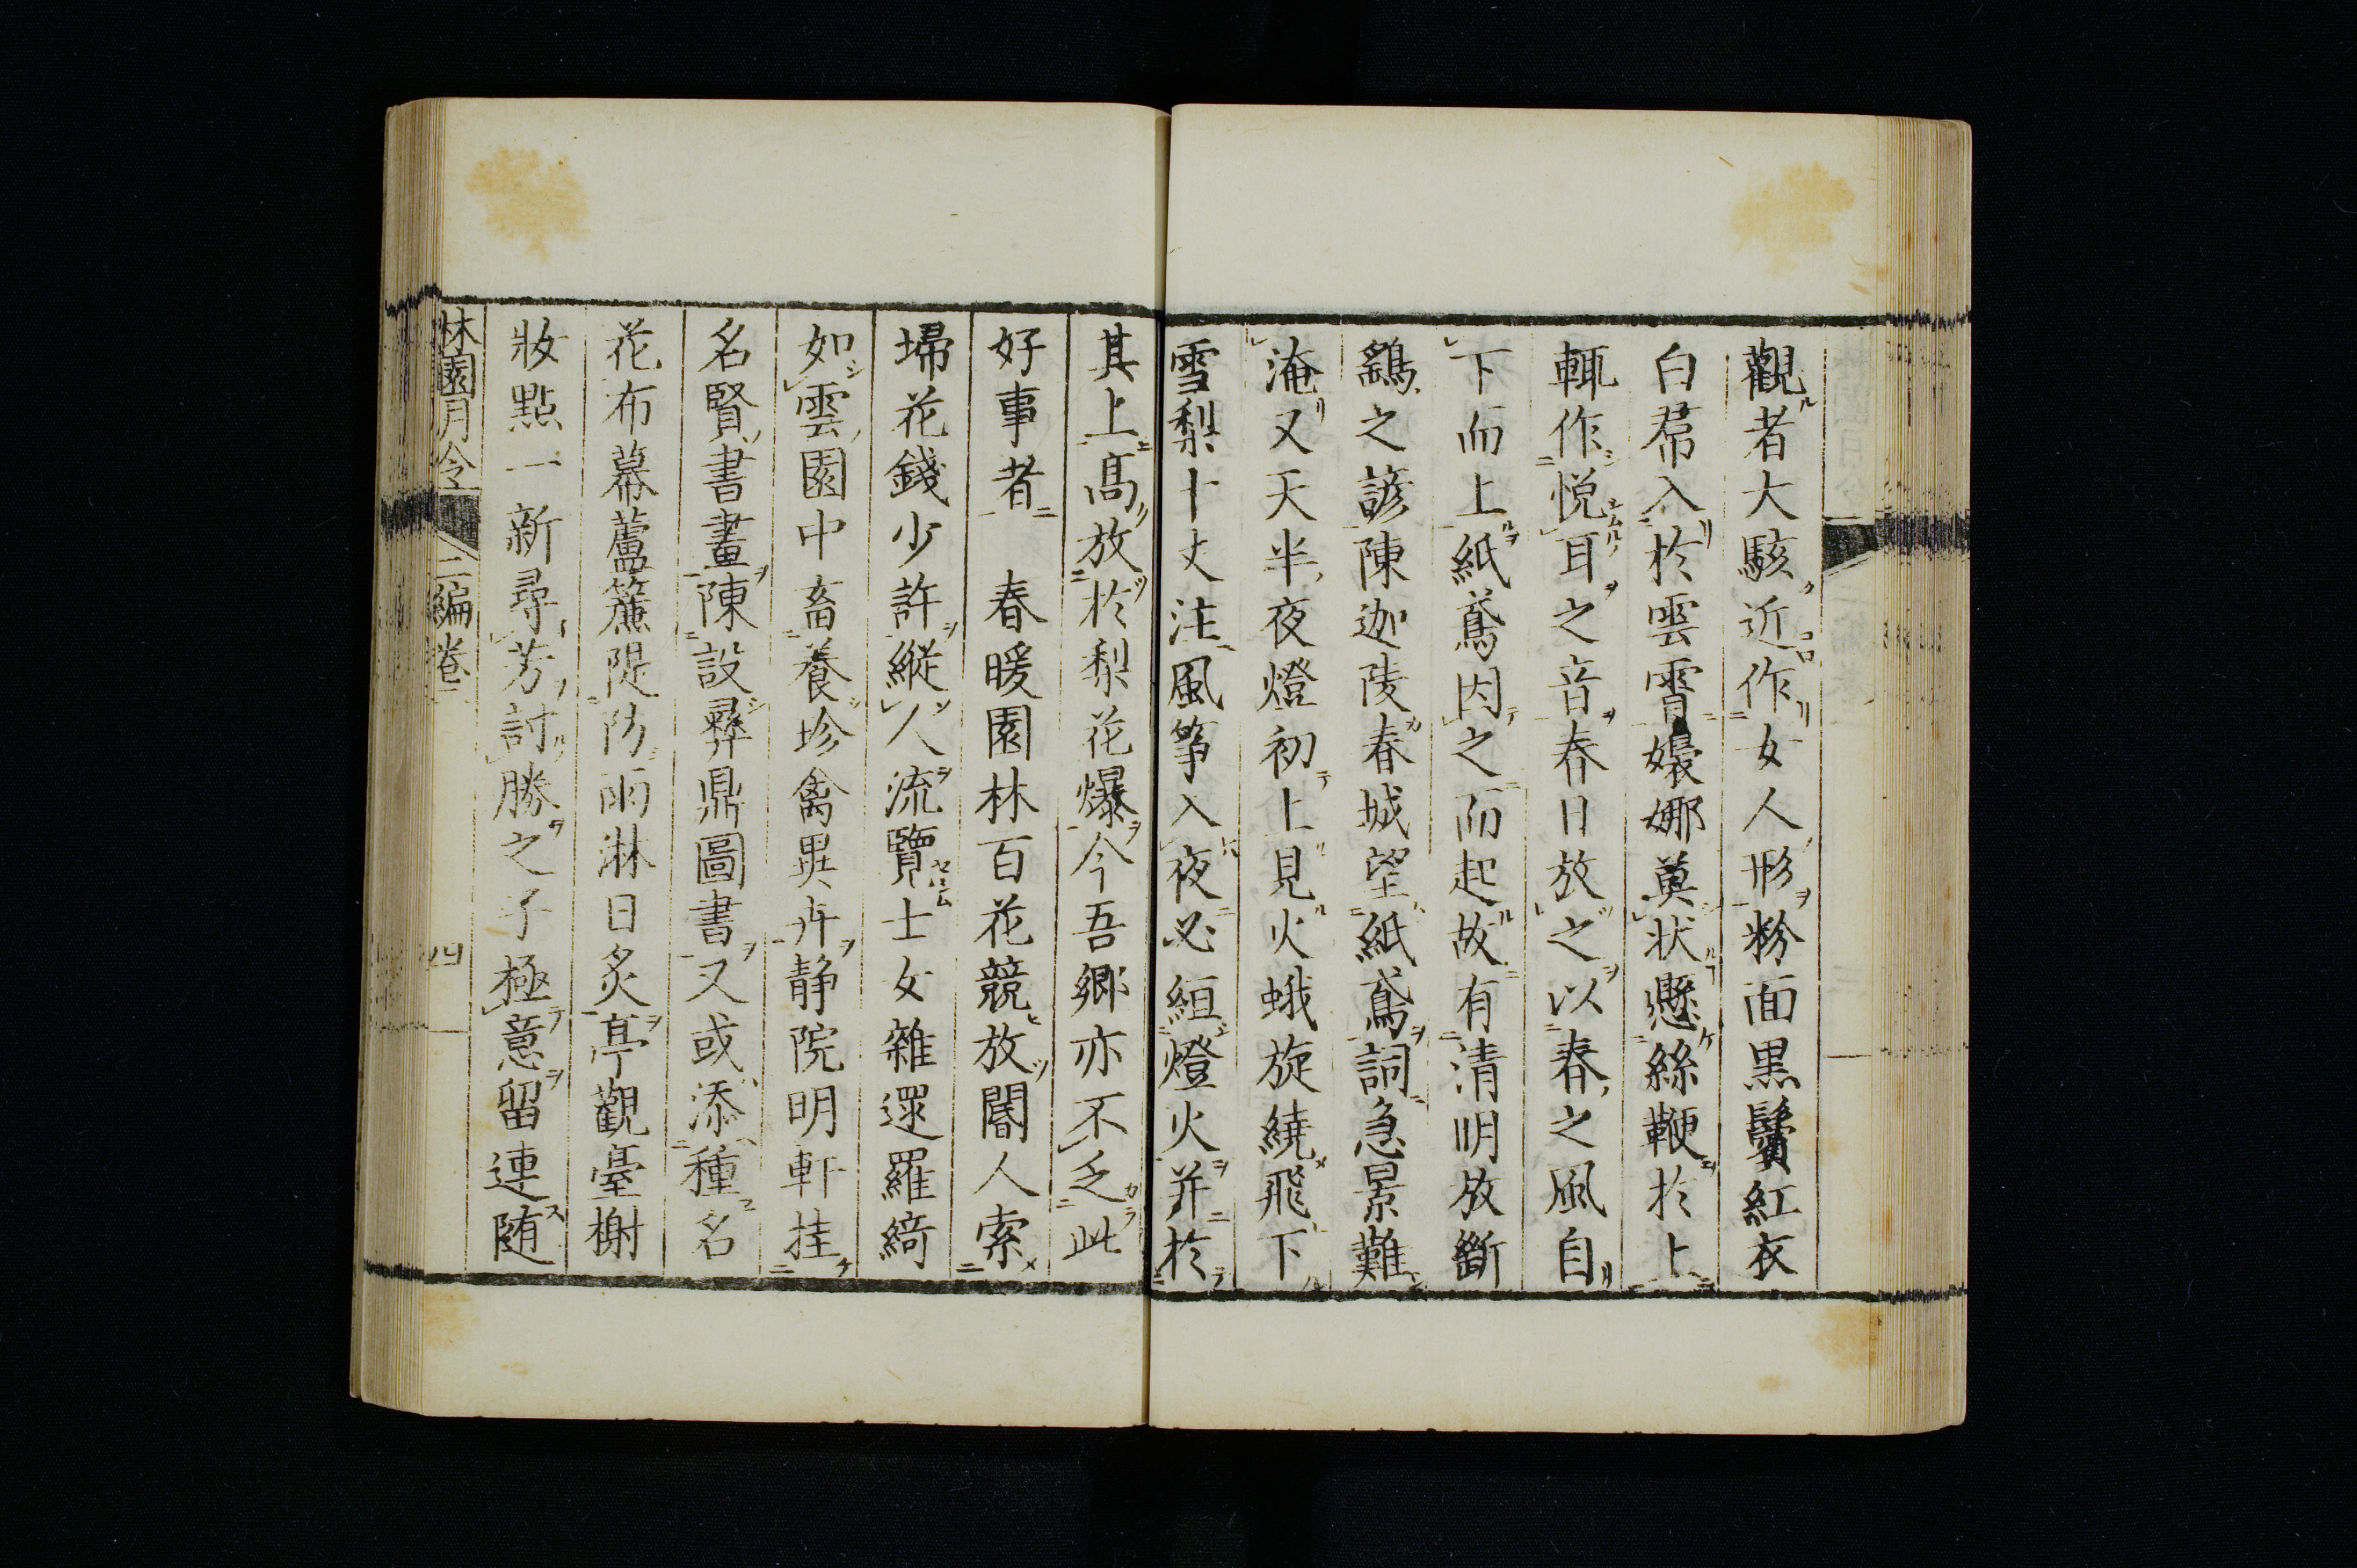 觀者大駭近作女人形粉面黒鬢紅衣
白帬入於雲霄嬝娜莫状懸絲鞭於上
輒作悦耳之音春日放之以春之風自
下而上紙鳶因之而起故有清明放斷
鷂之諺陳迦陵春城望紙鳶詞急景難
淹又天半夜燈初上見火蛾旋繞飛下
雪梨十丈注風筝入夜必絙燈火并於
其上髙放於梨花爆今吾郷亦不乏此
好事者　春暖園林百花競放閽人索
埽花錢少許縦人流覽士女雜遝羅綺
如雲園中畜養珍禽異卉静院明軒挂
名賢書畫陳設彛鼎圖書又或添種名
花布幕蘆簾隄防雨淋日炙亭觀臺榭
妝點一新尋芳討勝之子極意留連随
林園月令　二編卷二　四